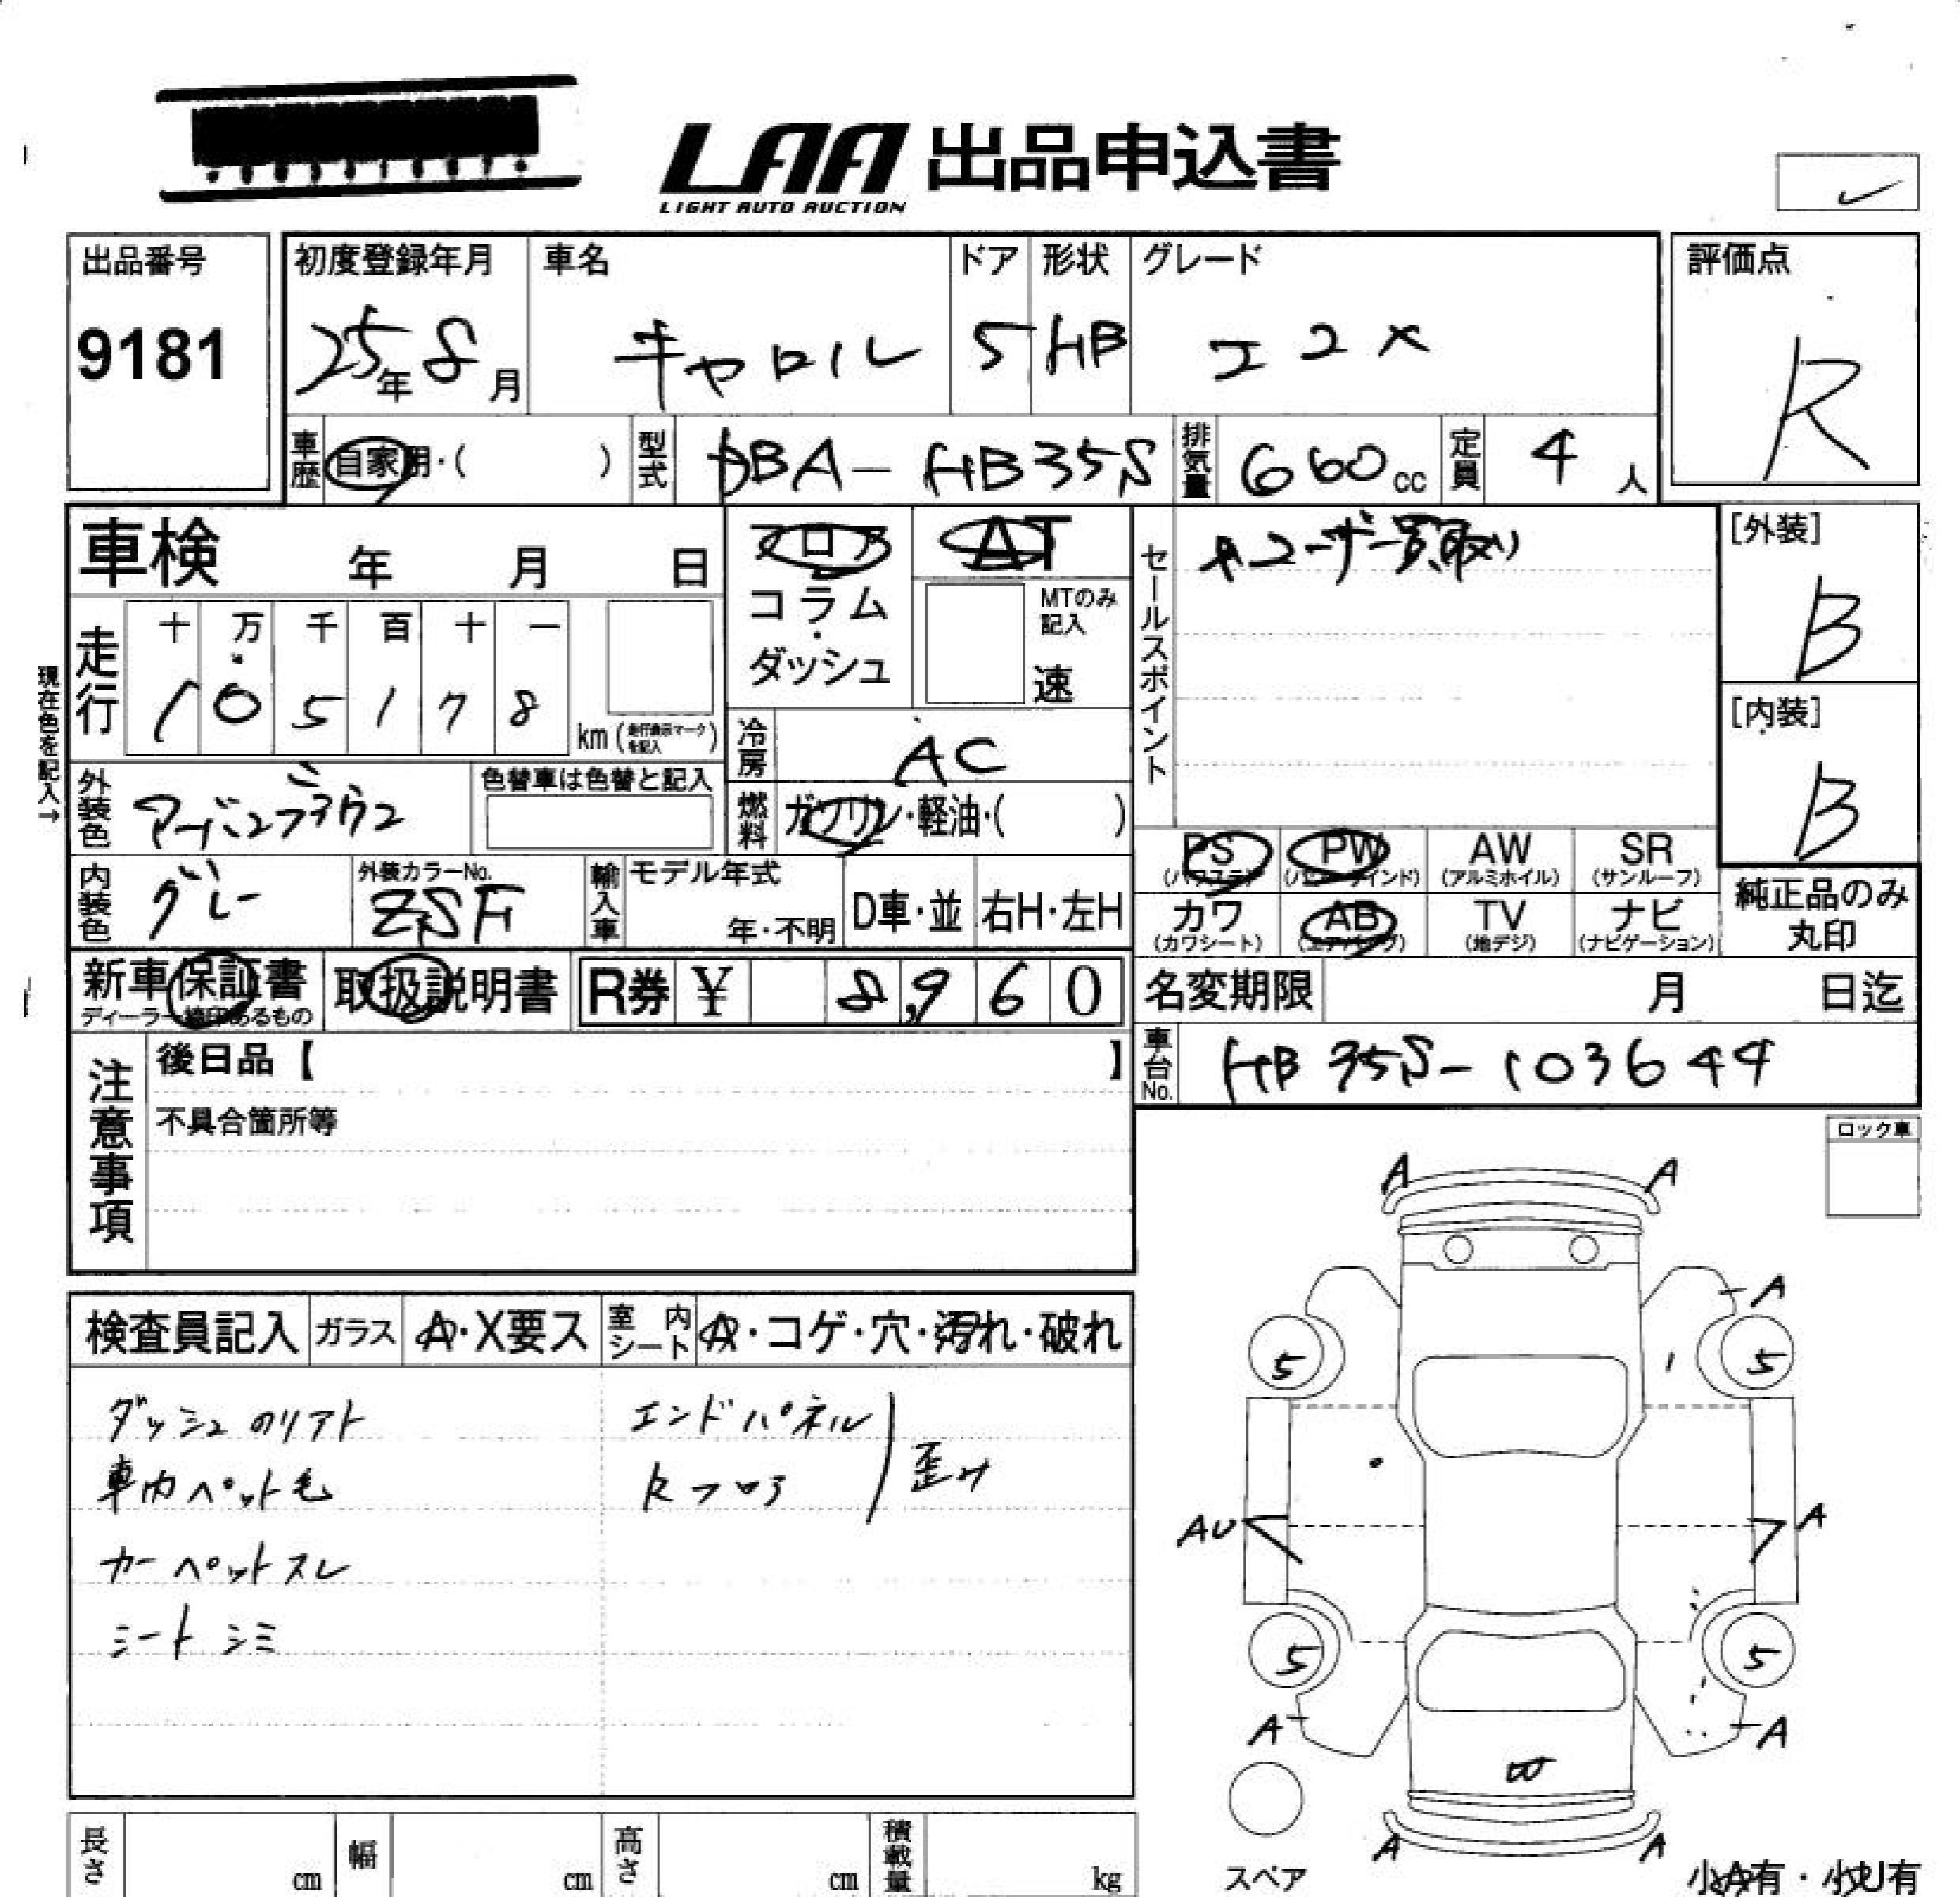 LAA 出品申込書
LIGHT AUTO AUCTION
出品番号
9181
初度登録年月
25年 8月
車名
キャロル
ドア
5
形状
HB
グレード
エコX
評価点
R
車歴 自家用・( )
型式 DBA-HB35S
排気量 660cc
定員 4人
車検 年 月 日
フロア
コラム
ダッシュ
AT
MTのみ記入
速
セールスポイント
ユーザー買取り
[外装]
B
[内装]
B
現在色を記入→
走行
十 万 千 百 十 一
1 0 5 1 7 8
km (走行表示マークを記入)
冷房 AC
外装色
色替車は色替と記入
燃料 ガソリン・軽油・( )
内装色 グレー
外装カラーNo.
ZSF
輸入車
モデル年式
年・不明
D車・並
右H・左H
PS
(パワステ)
PW
(パワーウインド)
AW
(アルミホイル)
SR
(サンルーフ)
カワ
(カワシート)
AB
(エアバッグ)
TV
(地デジ)
ナビ
(ナビゲーション)
純正品のみ
丸印
新車保証書
ディーラー捺印あるもの
取扱説明書
R券 ¥ 8,960
名変期限 月 日迄
車台No. HB35S-103644
注意事項
後日品【 】
不具合箇所等
ロック車
検査員記入
ガラス A・X要ス
室内シート A・コゲ・穴・汚れ・破れ
ダッシュ のりアト
車内ペット毛
カーペットスレ
シート シミ
エンドパネル
Rフロア
歪み
A A
A
5 5
AU A
5 5
A A
W
A A
スペア
小A有・小U有
長さ cm
幅 cm
高さ cm
積載量 kg